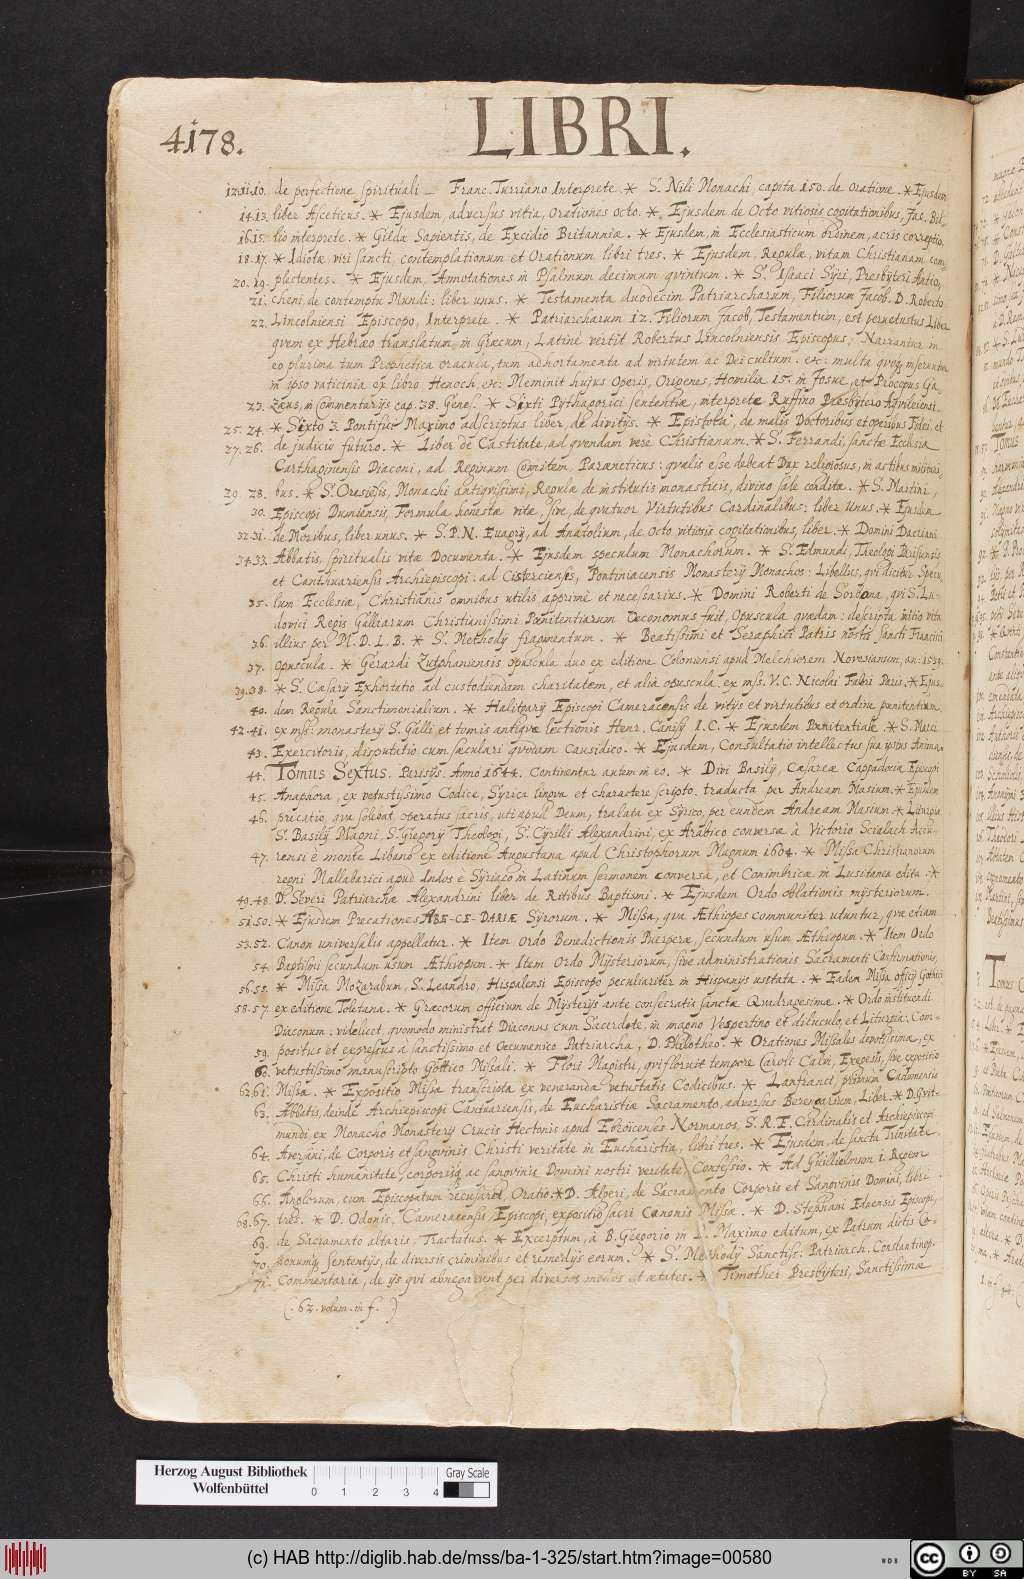 4178. LIBRI.
12.11.10. de perfectione spirituali _ Franc. Turriano Interprete. * S. Nili Monachi, capita 150. de Oratione. * Ejusdem
14.13. liber Asceticus. * Ejusdem, adversus vitia, Orationes octo. * Ejusdem de Octo vitiosis cogitationibus, Jac. Bil-
16.15. lio interprete. * Gildæ Sapientis, de Excidio Britanniæ. * Ejusdem, in Ecclesiasticum ordinem, acris correptio.
18.17. * Idiotæ viri sancti, contemplationum et Orationum libri tres. * Ejusdem, Regulæ, vitam Christianam com-
20.19. plectentes. * Ejusdem, Annotationes in Psalmum decimum quintum. * S. Isaaci Syri, Presbyteri Antio-
21. cheni, de contemptu Mundi: liber unus. * Testamenta duodecim Patriarcharum, Filiorum Jacob. D. Roberto
22. Lincolniensi Episcopo, Interprete. * Patriarcharum 12. Filiorum Jacob, Testamentum, est pervetustus Liber
quem ex Hebræo translatum in Græcum, Latinè vertit Robertus Lincolniensis Episcopus, Narrantur in
eo plurima tum Prophetica oracula, tum adhortamenta ad virtutem ac Dei cultum. &c: multa quoq; inseruntur
in ipso vaticinia ex libro Henoch, &c: Meminit hujus Operis, Origenes, Homilia 15. in Josue, et Procopius Ga-
23. zæus, in Commentarijs cap. 38. Genes. * Sixti Pythagorici sententiæ, interprete Ruffino Presbytero Aquileiensi.
25.24. * Sixto 3. Pontifici Maximo adscriptus liber, de divitijs. * Epistola, de malis Doctoribus et operibus Fidei, et
27.26. de judicio futuro. * Liber de Castitate, ad quendam verè Christianum. * S. Ferrandi, sanctæ Ecclesiæ
Carthaginensis Diaconi, ad Reginum Comitem, Paræneticus: qualis esse debeat Dux religiosus, in actibus militari-
29. 28. bus. * S. Orsiesis, Monachi antiquissimi, Regulæ de institutis monasticis, divino sale conditæ. * S. Martini,
30. Episcopi Dumiensis, Formula honestæ vitæ, sive, de quatuor Virtutibus Cardinalibus: liber Unus. * Ejusdem
32.31. de Moribus, liber unus. * S. P. N. Euagrij, ad Anatolium, de Octo vitiosis cogitationibus, liber. * Domini Dacriani
34.33. Abbatis, spiritualis vitæ Documenta. * Ejusdem speculum Monachorum. * S. Edmundi, Theologi Parisiensis
et Canthuariensis Archiepiscopi: ad Cistercienses, Pontiniacensis Monasterij Monachos: Libellus, qui dicitur Specu-
35. lum Ecclesiæ, Christianis omnibus utilis apprimè et necessarius. * Domini Roberti de Sorbona, qui S. Lu-
dovici Regis Galliarum Christianissimi Pœnitentiarum Œconomus fuit, Opuscula quædam: descripta initio vita
36. illius per M. D. L. B. * S. Methodij fragmentum. * Beatissimi et Seraphici Patris nostri sancti Francisci
37. Opuscula. * Gerardi Zutphaniensis opuscula duo ex editione Coloniensi apud Melchiorem Novesianum, an: 1539.
39.38. * S. Cæsarij Exhortatio ad custodiendam charitatem, et alia opuscula ex mss. V. C. Nicolai Fabri Paris. * Ejus-
40. dem Regula Sanctimonialium. * Halitgarij Episcopi Cameracensis de vitijs et virtutibus et ordine pœnitentium,
42.41. ex mss: monasterij S. Galli et tomis antiquæ lectionis Henr. Canisij I. C. * Ejusdem Pœnitentiale * S. Marci
43. Exercitoris, disputatio cum sæculari quodam Causidico. * Ejusdem, Consultatio intellectus sua ipsius Animæ.
44. Tomus Sextus. Parisijs. Anno 1644. Continentur autem in eo. * Divi Basilij, Cæsareæ Cappadociæ Episcopi
45. Anaphora, ex vetustissimo Codice, Syrica lingva et charactere scripto. traducta per Andream Masium. * Ejusdem
46. precatio, qua solebat, operatus sacris, uti apud Deum, tralata ex Syrico, per eundem Andream Masium * Liturgia
S. Basilij Magni, S. Gregorij Theologi, S. Cyrilli Alexandrini, ex Arabico conversæ à Victorio Scialach Accu-
47. rensi è monte Libano ex editione Augustana apud Christophorum Magnum 1604. * Missa Christianorum
regni Mallabarici apud Indos è Syriaco in Latinum sermonem conversa, et Conimbricæ in Lusitania edita. *
49.48. D. Severi Patriarchæ Alexandrini liber de Ritibus Baptismi. * Ejusdem Ordo oblationis mysteriorum.
51.50. * Ejusdem Precationes ABE-CE-DARIÆ Syrorum. * Missa, qua Æthiopes communiter utuntur, quæ etiam
53.52. Canon universalis appellatur. * Item Ordo Benedictionis Puerperæ, secundum usum Æthiopum. * Item Ordo
54. Baptismi secundum usum Æthiopum. * Item Ordo Mysteriorum, sive administrationis Sacramenti Confirmationis,
56.55. * Missa Mozarabum, S. Leandro, Hispalensi Episcopo peculiariter in Hispanijs usitata. * Eadem Missa officij Gothici
58.57. ex editione Toletana. * Græcorum officium de Mysterijs ante consecratis sanctæ Quadragesimæ. * Ordo instituendi
Diaconum: videlicet, quomodo ministrat Diaconus cum Sacerdote, in magno Vespertino et diluculo, et Liturgia: Com-
59. positus et expressus à sanctissimo et Oecumenico Patriarcha, D. Philotheo. * Orationes Missales devotissimæ, ex
60. vetustissimo manuscripto Gottico Missali. * Flori Magistri, qui floruit tempore Caroli Calvi, Exegesis, sive expositio
62.61. Missæ. * Expositio Missæ transcripta ex veneranda vetustatis Codicibus. * Lanfranci, primum Cadomensis
63. Abbatis, deinde Archiepiscopi Cantuariensis, de Eucharistiæ Sacramento, adversus Berengarium, Liber. * D. Guit-
mundi ex Monacho Monasterij Crucis Hectonis apud Ebroicenses Normanos, S. R. E. Cardinalis et Archiepiscopi
64. Aversani, de Corporis et sanguinis Christi veritate in Eucharistia, libri tres. * Ejusdem, de sancta Trinitate
65. Christi humanitate, corporisq; ac sanguinis Domini nostri veritate Confessio. * Ad Guillielmum i. Regem
66. Anglorum, cum Episcopatum recusaret, Oratio. * D. Algeri, de Sacramento Corporis et Sanguinis Domini, libri
68.67. tres. * D. Odonis, Cameracensis Episcopi, expositio sacri Canonis Missæ. * D. Stephani Eduensis Episcopi,
69. de Sacramento altaris, Tractatus. * Excerptum, à B. Gregorio in P. Maximo editum, ex Patrum dictis Ca-
70. nonumq; sententijs, de diversis criminibus et remedijs eorum. * S. Methodij Sanctiss: Patriarch. Constantinop.
71. Commentaria, de ijs qui abnegarunt per diversos modos et ætates. * Timothei Presbyteri, Sanctissimæ
(. 62. volum. in f. )
Herzog August Bibliothek
Wolfenbüttel
0 1 2 3 4
Gray Scale
(c) HAB http://diglib.hab.de/mss/ba-1-325/start.htm?image=00580
WDB
CC BY SA